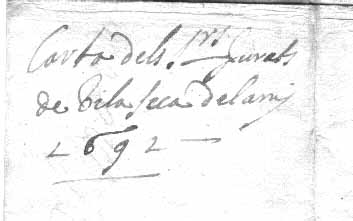 Carta dels s.rs Jurats
de Vila seca del any
2692